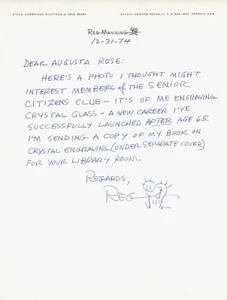 REG MANNING
12-31-74
DEAR AUGUSTA ROSE:
HERE'S A PHOTO I THOUGHT MIGHT
INTEREST MEMBERS of the SENIOR
CITIZENS CLUB - IT'S OF ME ENGRAVING
CRYSTAL GLASS - A NEW CAREER I'VE
SUCCESSFULLY LAUNCHED AFTER AGE 65.
I'M SENDING A COPY OF MY BOOK ON
CRYSTAL ENGRAVING (UNDER SEPARATE COVER)
FOR YOUR LIBRARY ROOM.
REGARDS,
REG